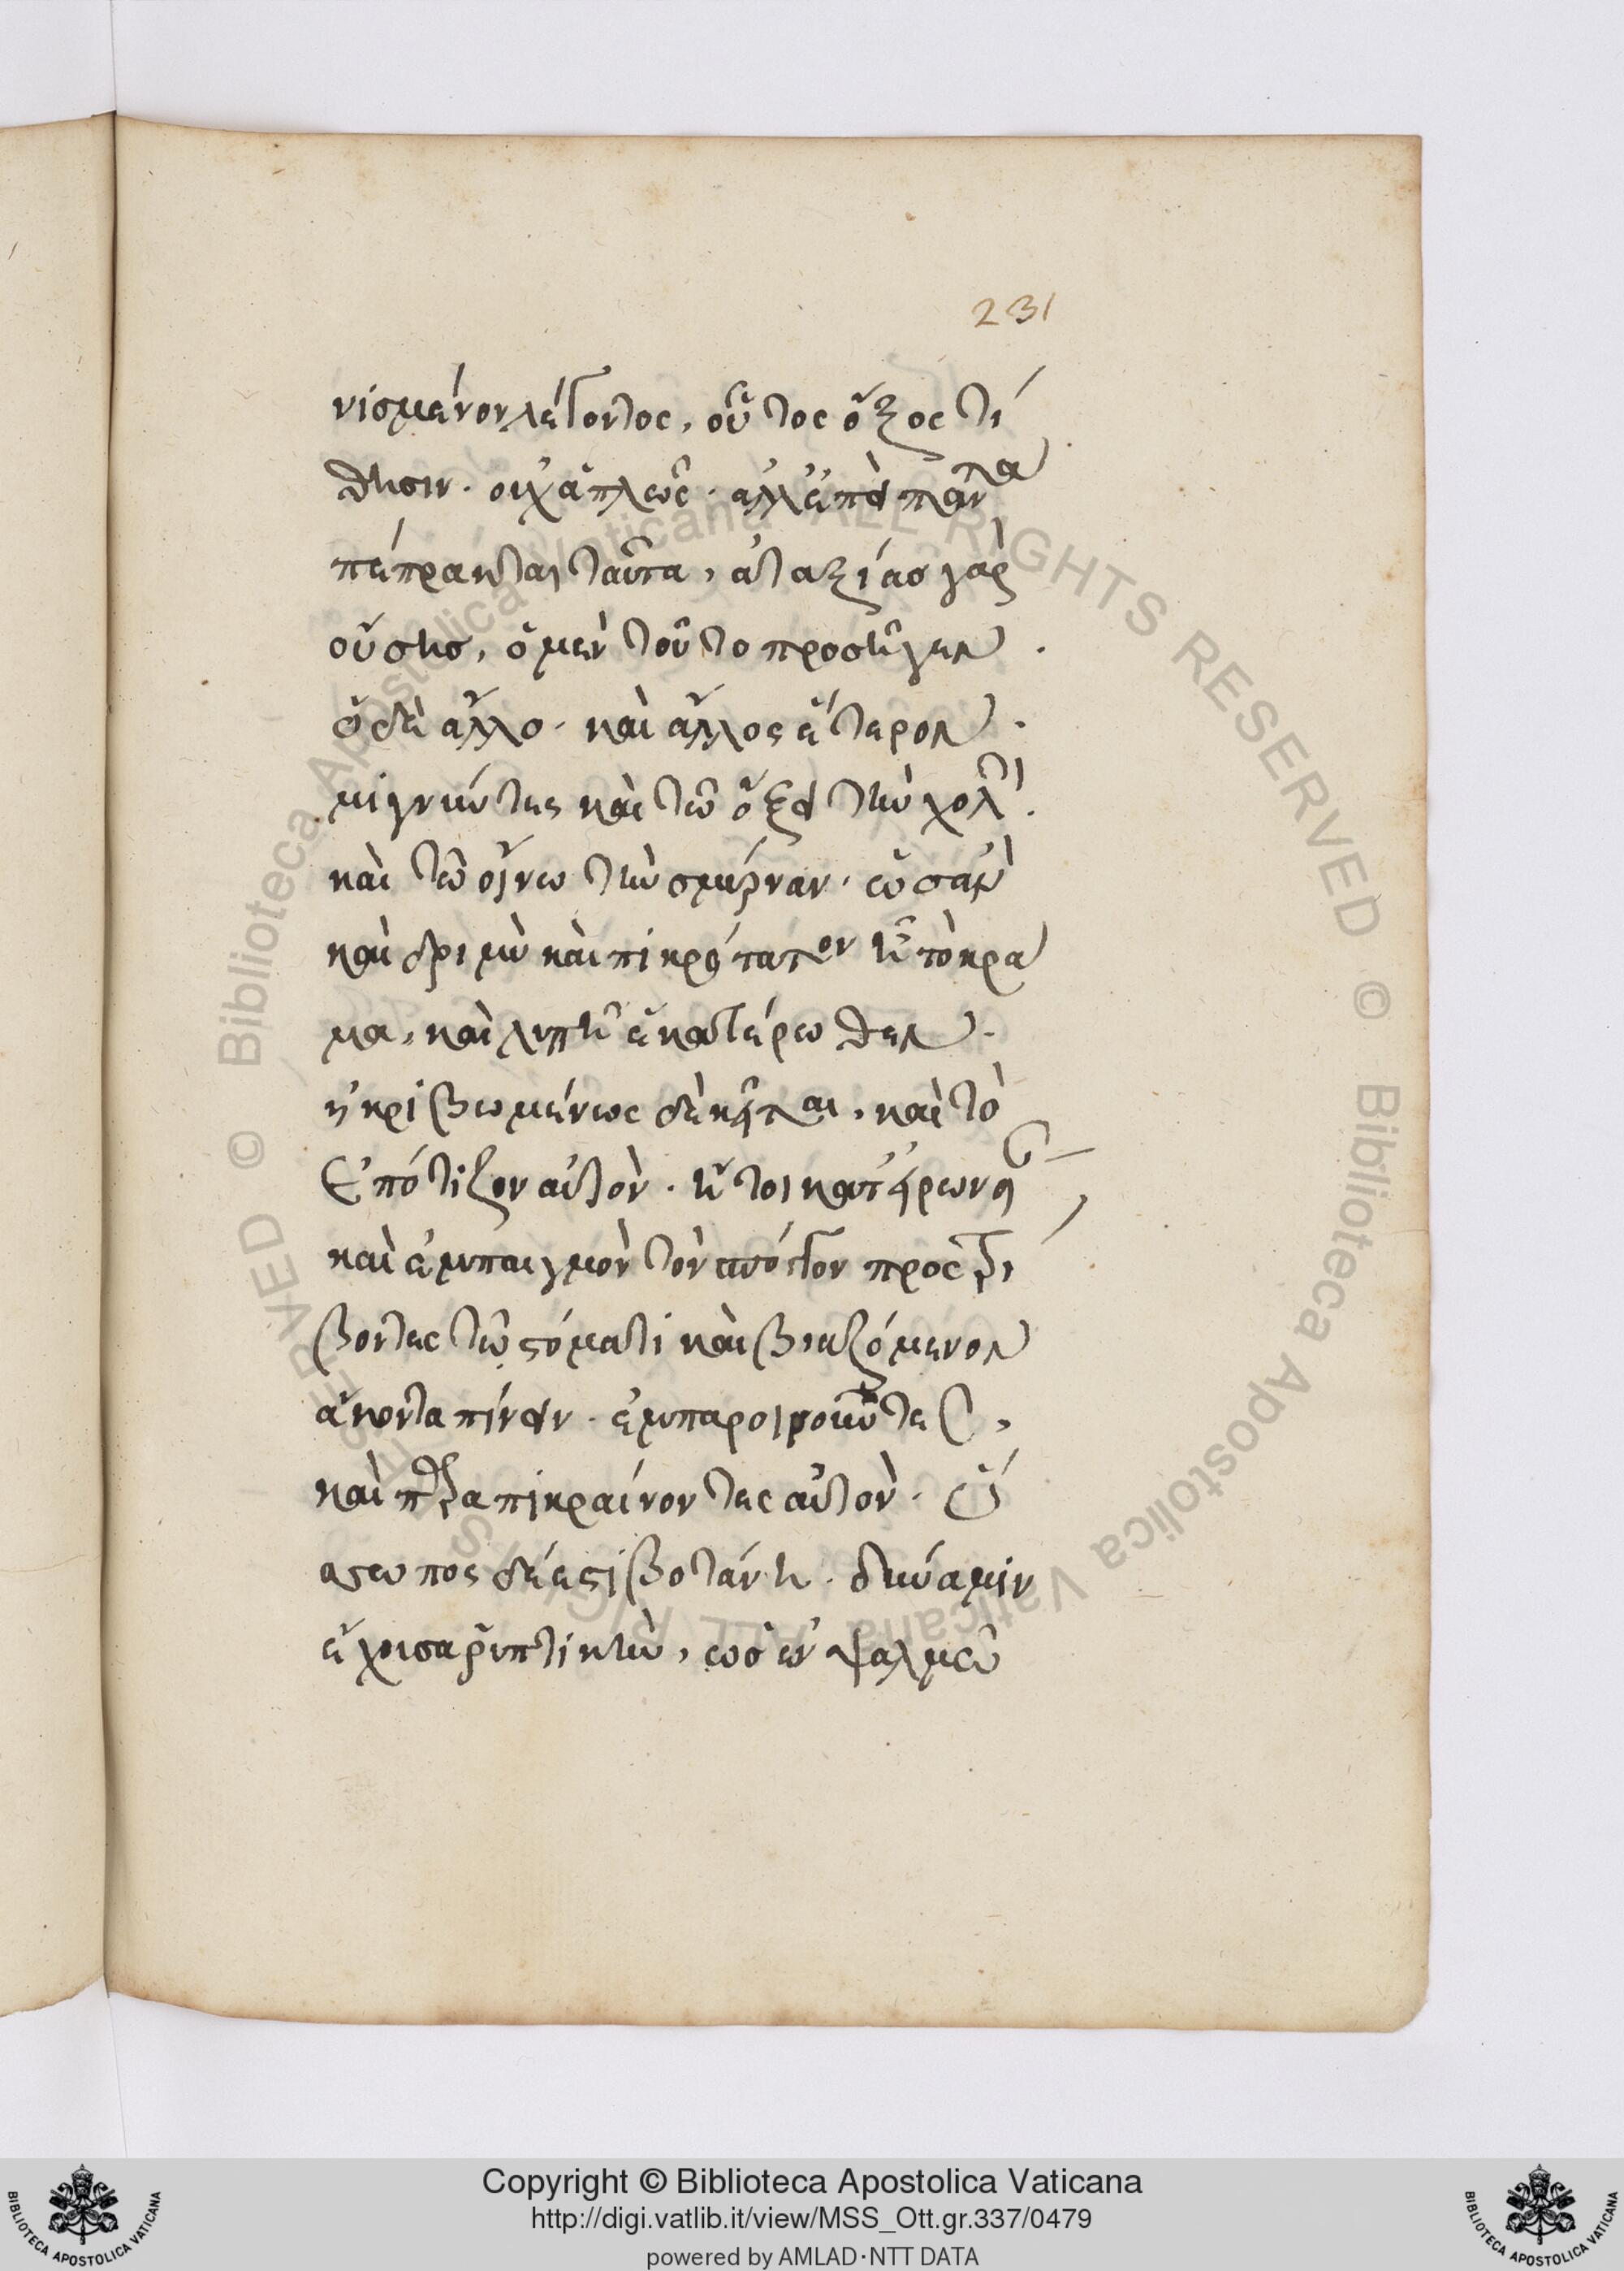 231
νισμένον λέγοντος, οὗτος ὄξος τί
θησιν. οὐχ ἁπλῶς. ἀλλ' ἐπεὶ πάντα
πέπρακται ταῦτα, ἀταξίας γὰρ
οὔσης, ὁ μὲν τοῦτο προσῆγεν.
ὁ δὲ ἄλλο. καὶ ἄλλος ἕτερον.
μιγνύντες καὶ τῶ ὄξει τὴν χολήν.
καὶ τῶ οἴνω τὴν σμύρναν. ὡς ἂν
καὶ δριμὺ καὶ πικρότατον ᾖ τὸ κρα
μα, καὶ λυπῆ ἑκατέρωθεν.
ἠκριβωμένως δὲ κεῖται, καὶ τὸ
ἐπότιζον αὐτὸν. ἤτοι κατείρωνα
καὶ ἐμπαιγμὸν τὸν σπόγγον προστρί
βοντες τῶ στόματι καὶ βιαζόμενον
ἄκοντα πίνειν. ἐμπαροινοῦντες,
καὶ παραπικραίνοντες αὐτὸν. ὕ
σσωπος δέ ἐστι βοτάνη. δύναμιν
ἔχουσα ῥυπτικὴν, ὡς ἐν ψαλμῶ
Copyright © Biblioteca Apostolica Vaticana
http://digi.vatlib.it/view/MSS_Ott.gr.337/0479
powered by AMLAD·NTT DATA
BIBLIOTECA APOSTOLICA VATICANA
BIBLIOTECA APOSTOLICA VATICANA
© Biblioteca Apostolica Vaticana ALL RIGHTS RESERVED
© Biblioteca Apostolica Vaticana ALL RIGHTS RESERVED